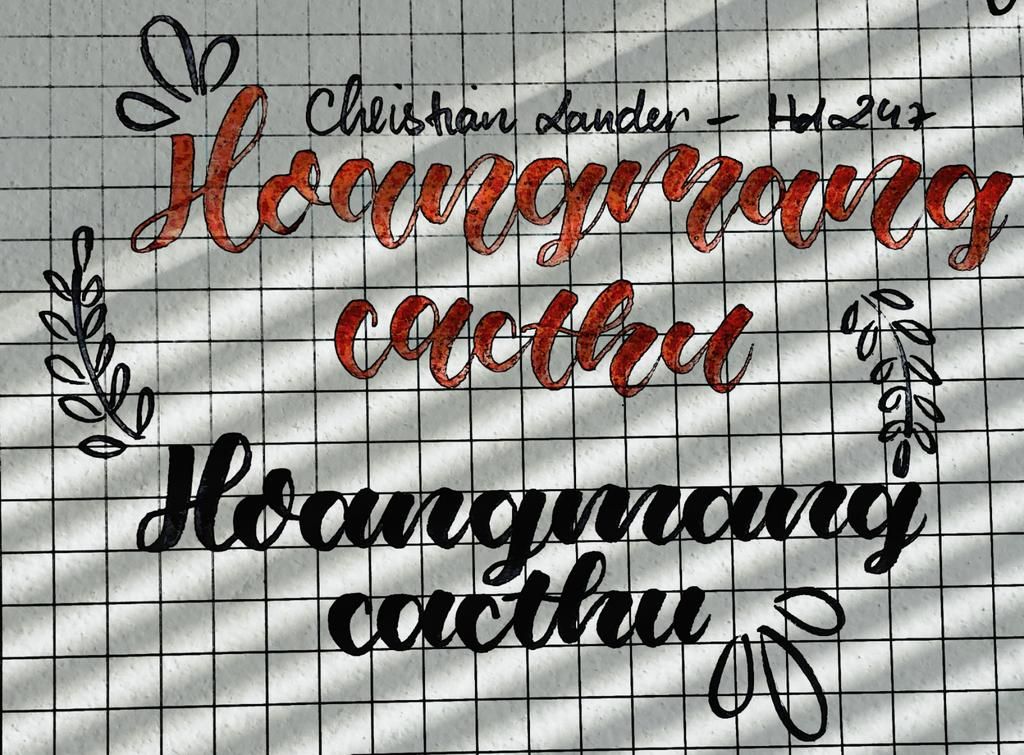 Christian Lander - Hd 247
Hoangmang
cacthu
Hoangmang
cacthu